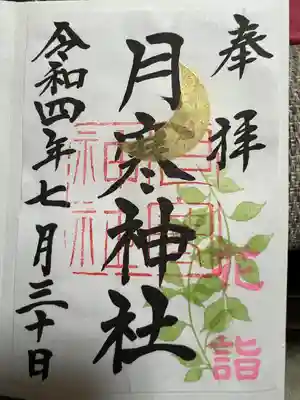 奉拝
花詣
月寒神社
令和四年七月三十日